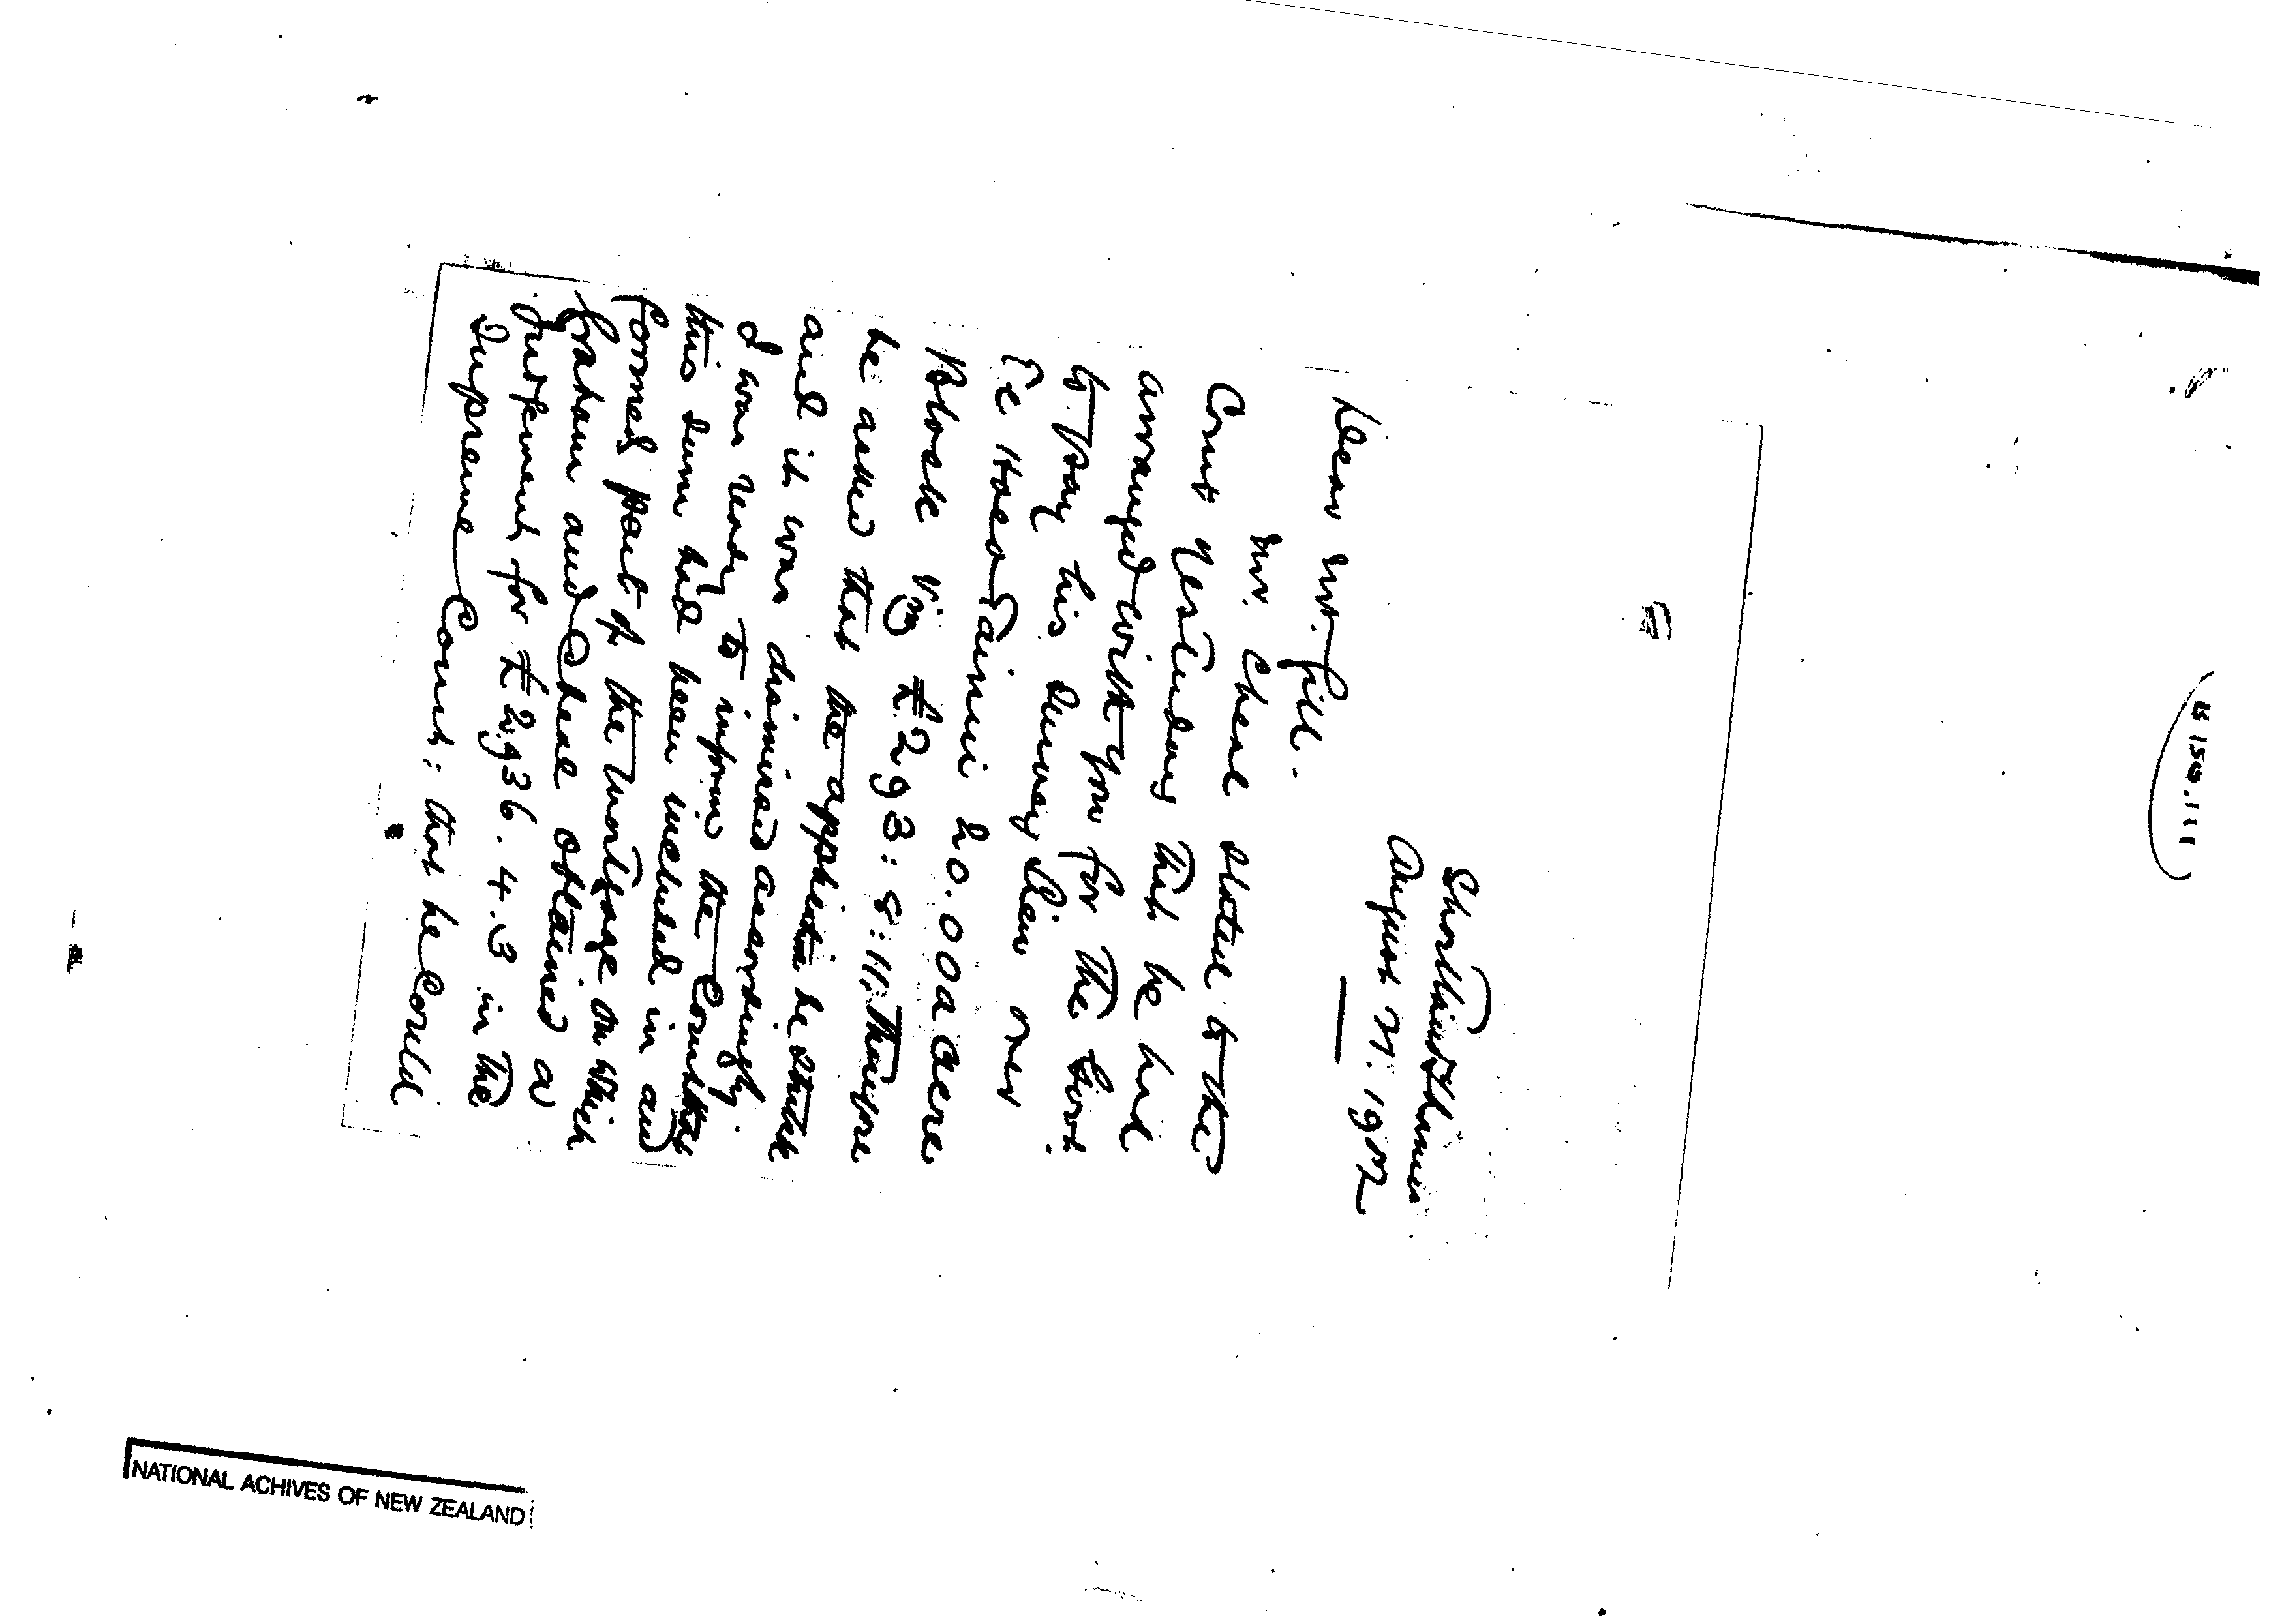 15150.111
Shortland Thames
August 21. 1902
Dear Mr. Gill.
Mr. Cheal stated to the
Court yesterday that he had
arranged with you for the Govt.
to pay his survey lien over
Te Hoe o Tainui 20.000 acre
Block viz £293:8:11, Therefore
he asked that the application be struck
and it was dismissed accordingly.
I was ready to inform the Court that
this sum had been included in and
formed part of the Mortgage on which
Graham and Cheal obtained a
Judgment for £2936.4.3 in the
Supreme Court; that he could
NATIONAL ACHIVES OF NEW ZEALAND